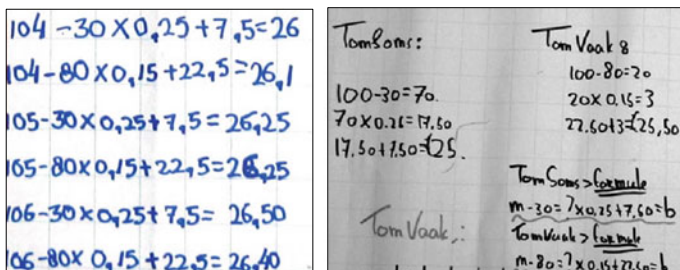 104-30×0,25+7,5=26
104-80×0,15+22,5=26,1
105-30×0,25+7,5=26,25
105-80×0,15+22,5=26,25
106-30×0,25+7,5= 26,50
106-80×0,15+22,5=26,40
TomSoms:
100-30=70.
70×0.25=17.50
17.50+7.50=€25.
TomVaak:
TomVaak 8
100-80=20
20×0.15=3
22.50+3=€25,50
TomSoms>formule
m-30=?×0.25+7,50=b
TomVaak>formule
m-80=?×0.15+22.50=b